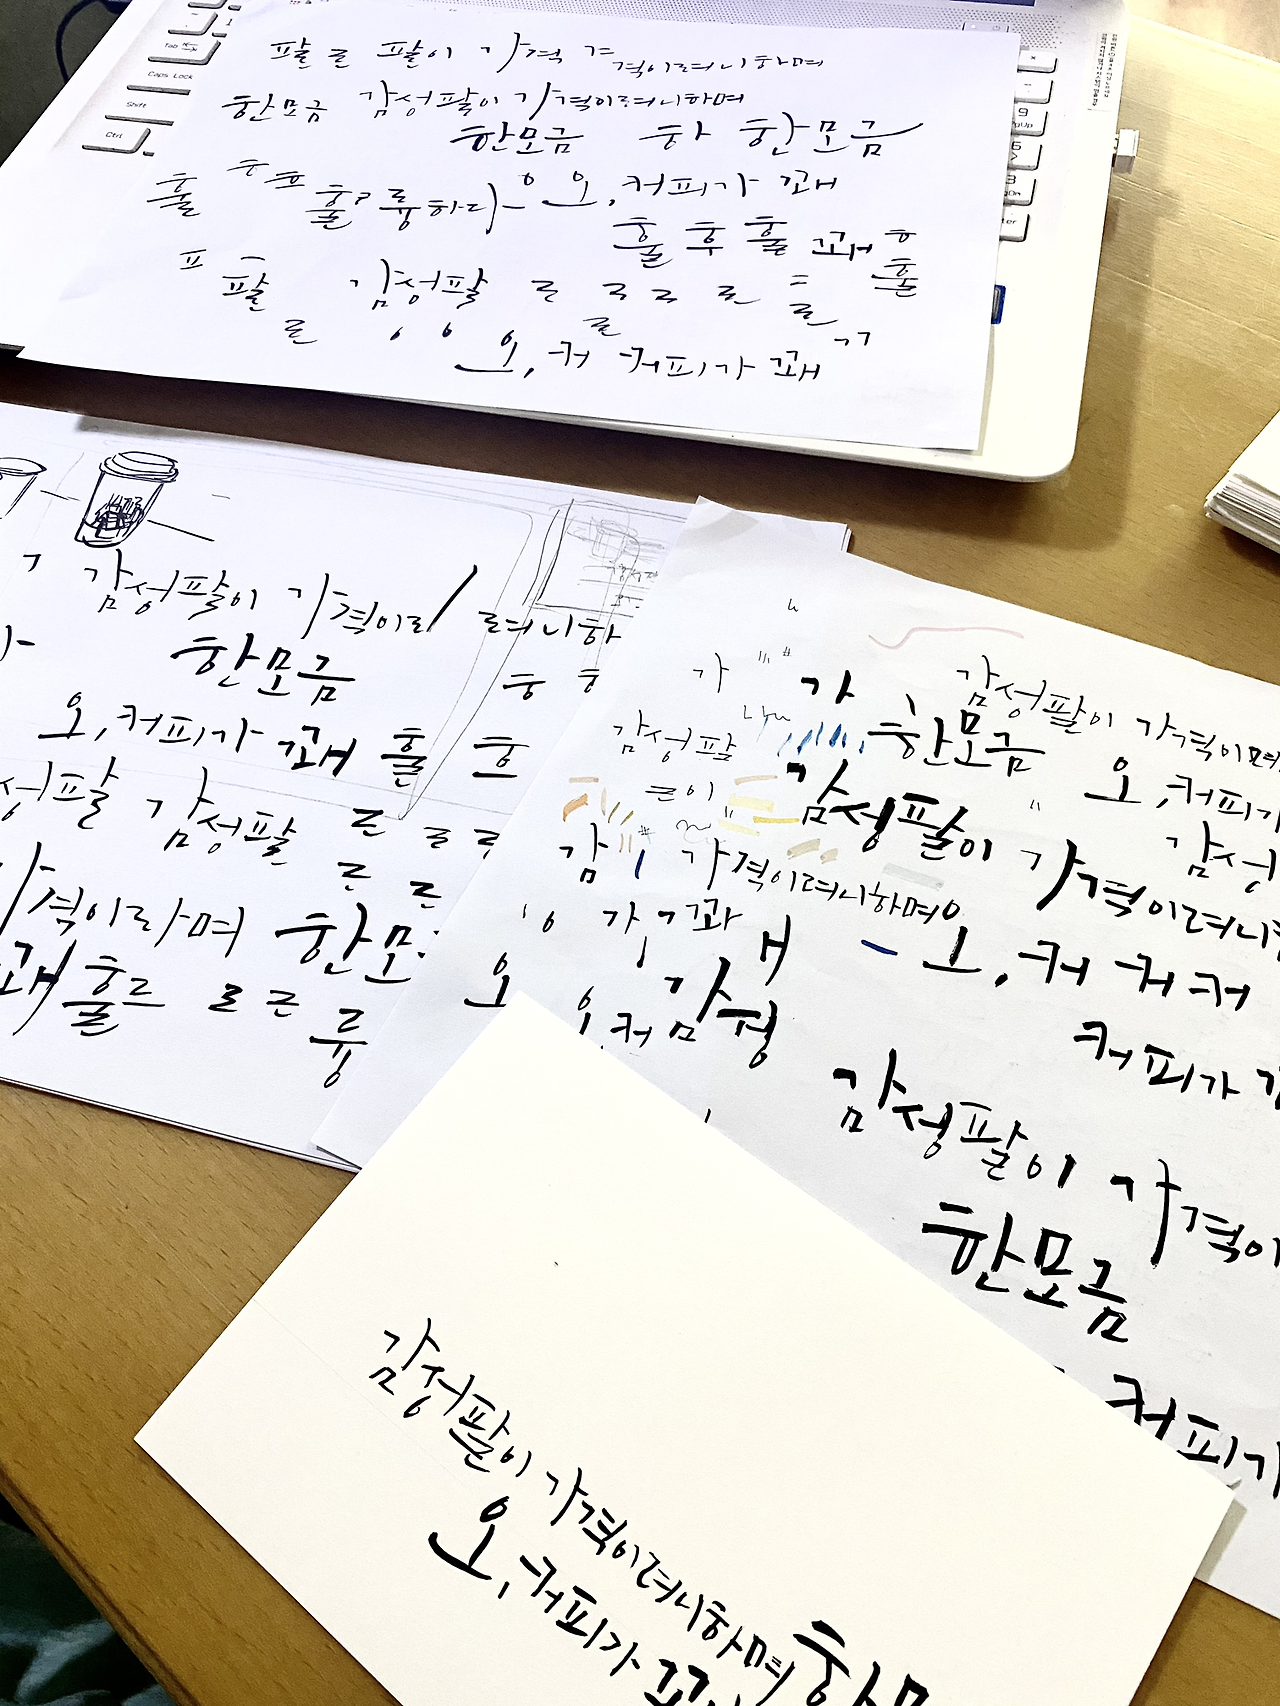 Tab
Caps Lock
Shift
Ctrl
9
PgUp
6
3
팔 를 팔이 가격 겨
격이려니하며
한모금 감성팔이 가격이려니하며
한모금 하 한모금
훌 후 프 훌 륭하다 오, 커피가 꽤
훌 후 훌 꽤 후
훌
프 팔 감성팔 른 르 르 른
른
오, 커 커피가 꽤
ㄱ 감성팔이 가격이 려니하
한모금
오, 커피가 꽤 훌 흐
성팔 감성팔 른 르 르
가격이라며 한모
꽤 훌르 르 르 륭
가 가
감성팔이 가격이며
감성팔 한모금 오, 커피가
른이 감성팔이 가격이려니하
감성
감 가격이려니하며
가 과 ㅐ
오, 커 커 커
오 오, 커 감성
커피가
감성팔이 가격이
한모금
커피가
감성팔이 가격이려니하며 한모
오, 커피가 꽤